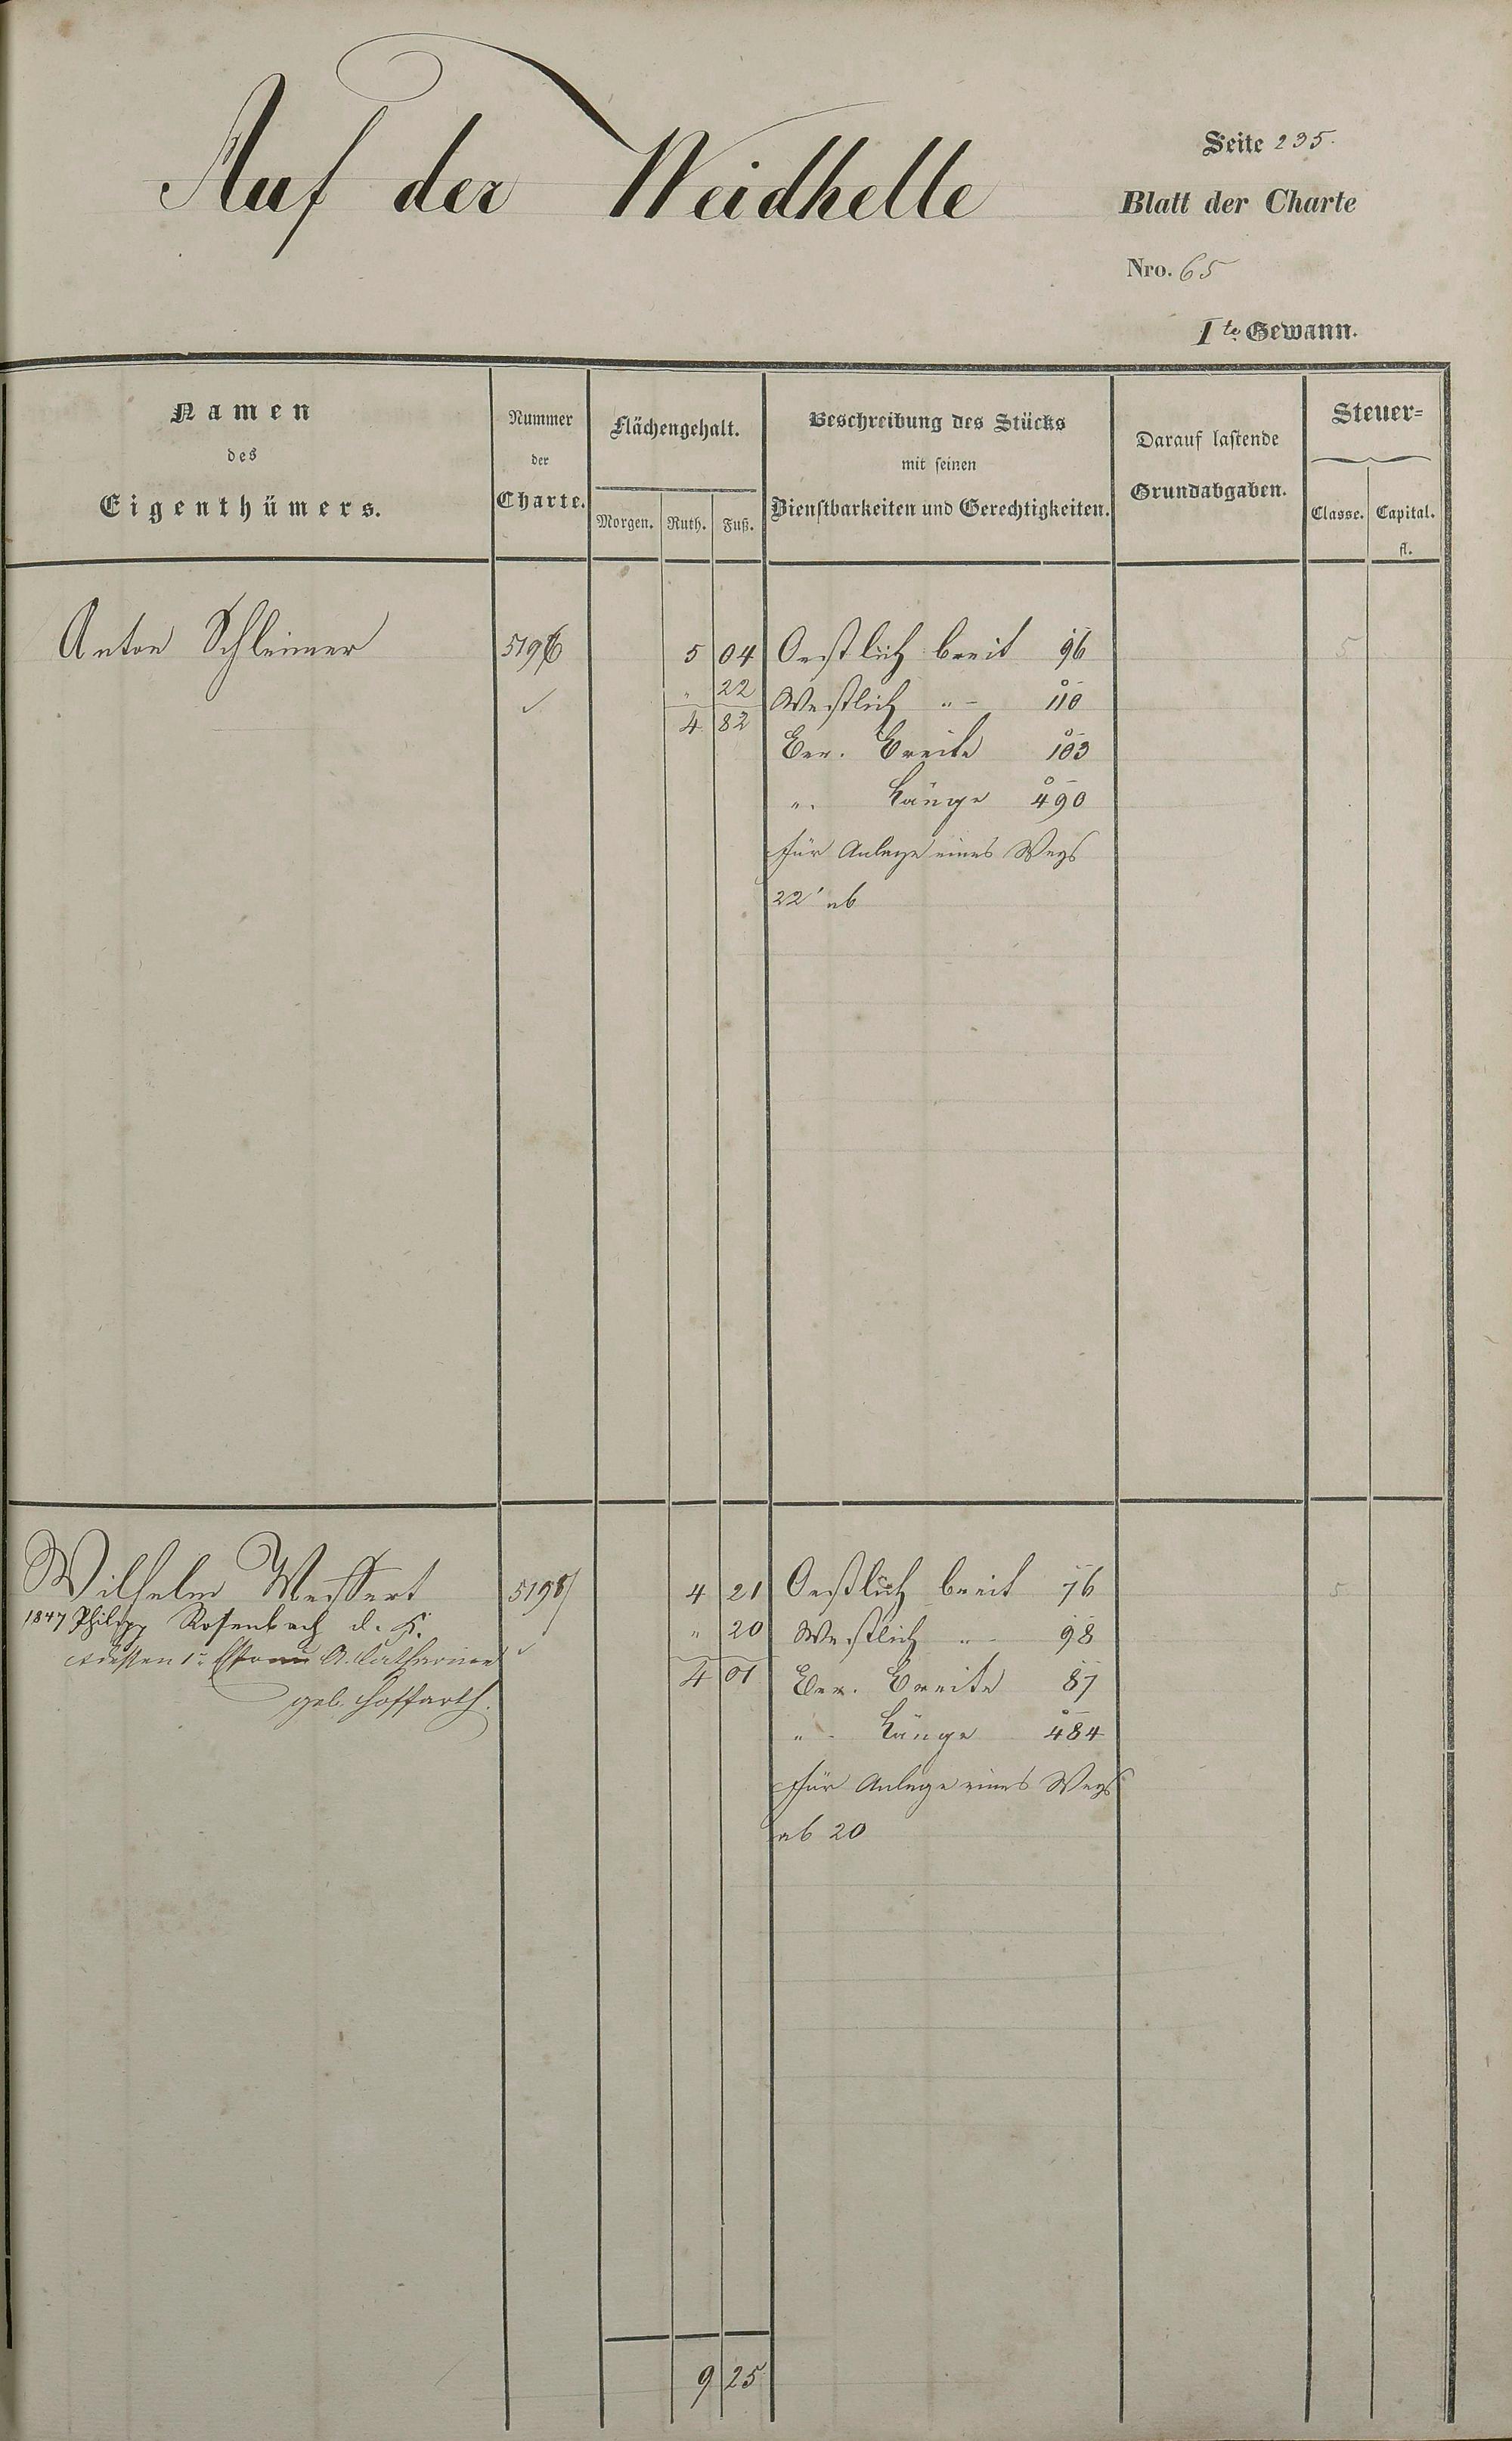 Auf der Weidhelle
Seite 235.
Blatt der Charte
Nro. 65
1te Gewann.
Namen
des
Eigenthümers.
Nummer
der
Charte.
Flächengehalt.
Morgen. Ruth. Fuß.
Beschreibung des Stücks
mit seinen
Dienstbarkeiten und Gerechtigkeiten.
Darauf lastende
Grundabgaben.
Steuer=
Classe. Capital.
fl.
Anton Schleimer 5196 5 04 Oestlich breit 96 5
" 22 Westlich " 110
4 82
Ver. Breite 103
" Länge 490
für Anlage eines Wegs
22' ab
Wilhelm Weissert 5197 4 21 Oestlich breit 76 5
1847 Philipp Rosenbach d. K. " 20 Westlich " 98
dessen 1r Ehefrau A. Catharina 4 01 Ver. Breite 87
geb. Hoffarth.
" Länge 484
für Anlage eines Wegs
ab 20
9 25